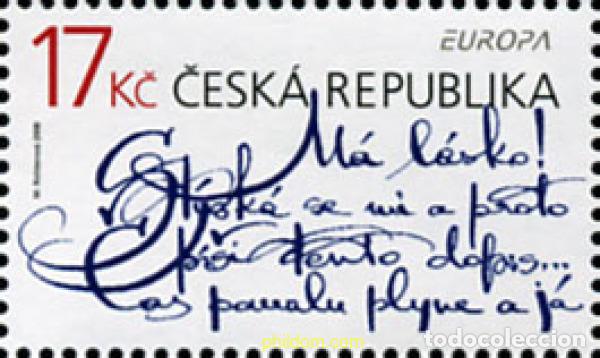 EUROPA
17 Kč ČESKÁ REPUBLIKA
Má lásko!
Stýská se mi a proto
píši tento dopis...
Čas pomalu plyne a já
phildom.com
todocoleccion.net